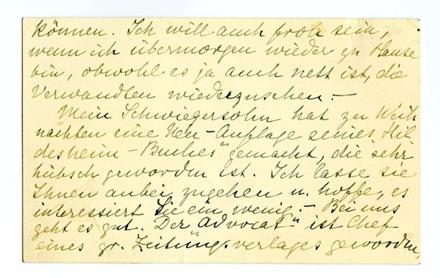 können. Ich will auch froh sein,
wenn ich übermorgen wieder zu Hause
bin, obwohl es ja auch nett ist, die
Verwandten wiederzusehen. –
Mein Schwiegersohn hat zu Weih
nachten eine Neu-Auflage seines „Hil
desheim-Buches" gemacht, die sehr
hübsch geworden ist. Ich lasse sie
Ihnen anbei zugehen u. hoffe, es
interessiert Sie ein wenig. – Bei uns
geht es gut. Der „Advocat" ist Chef
eines gr. Zeitungsverlages geworden,